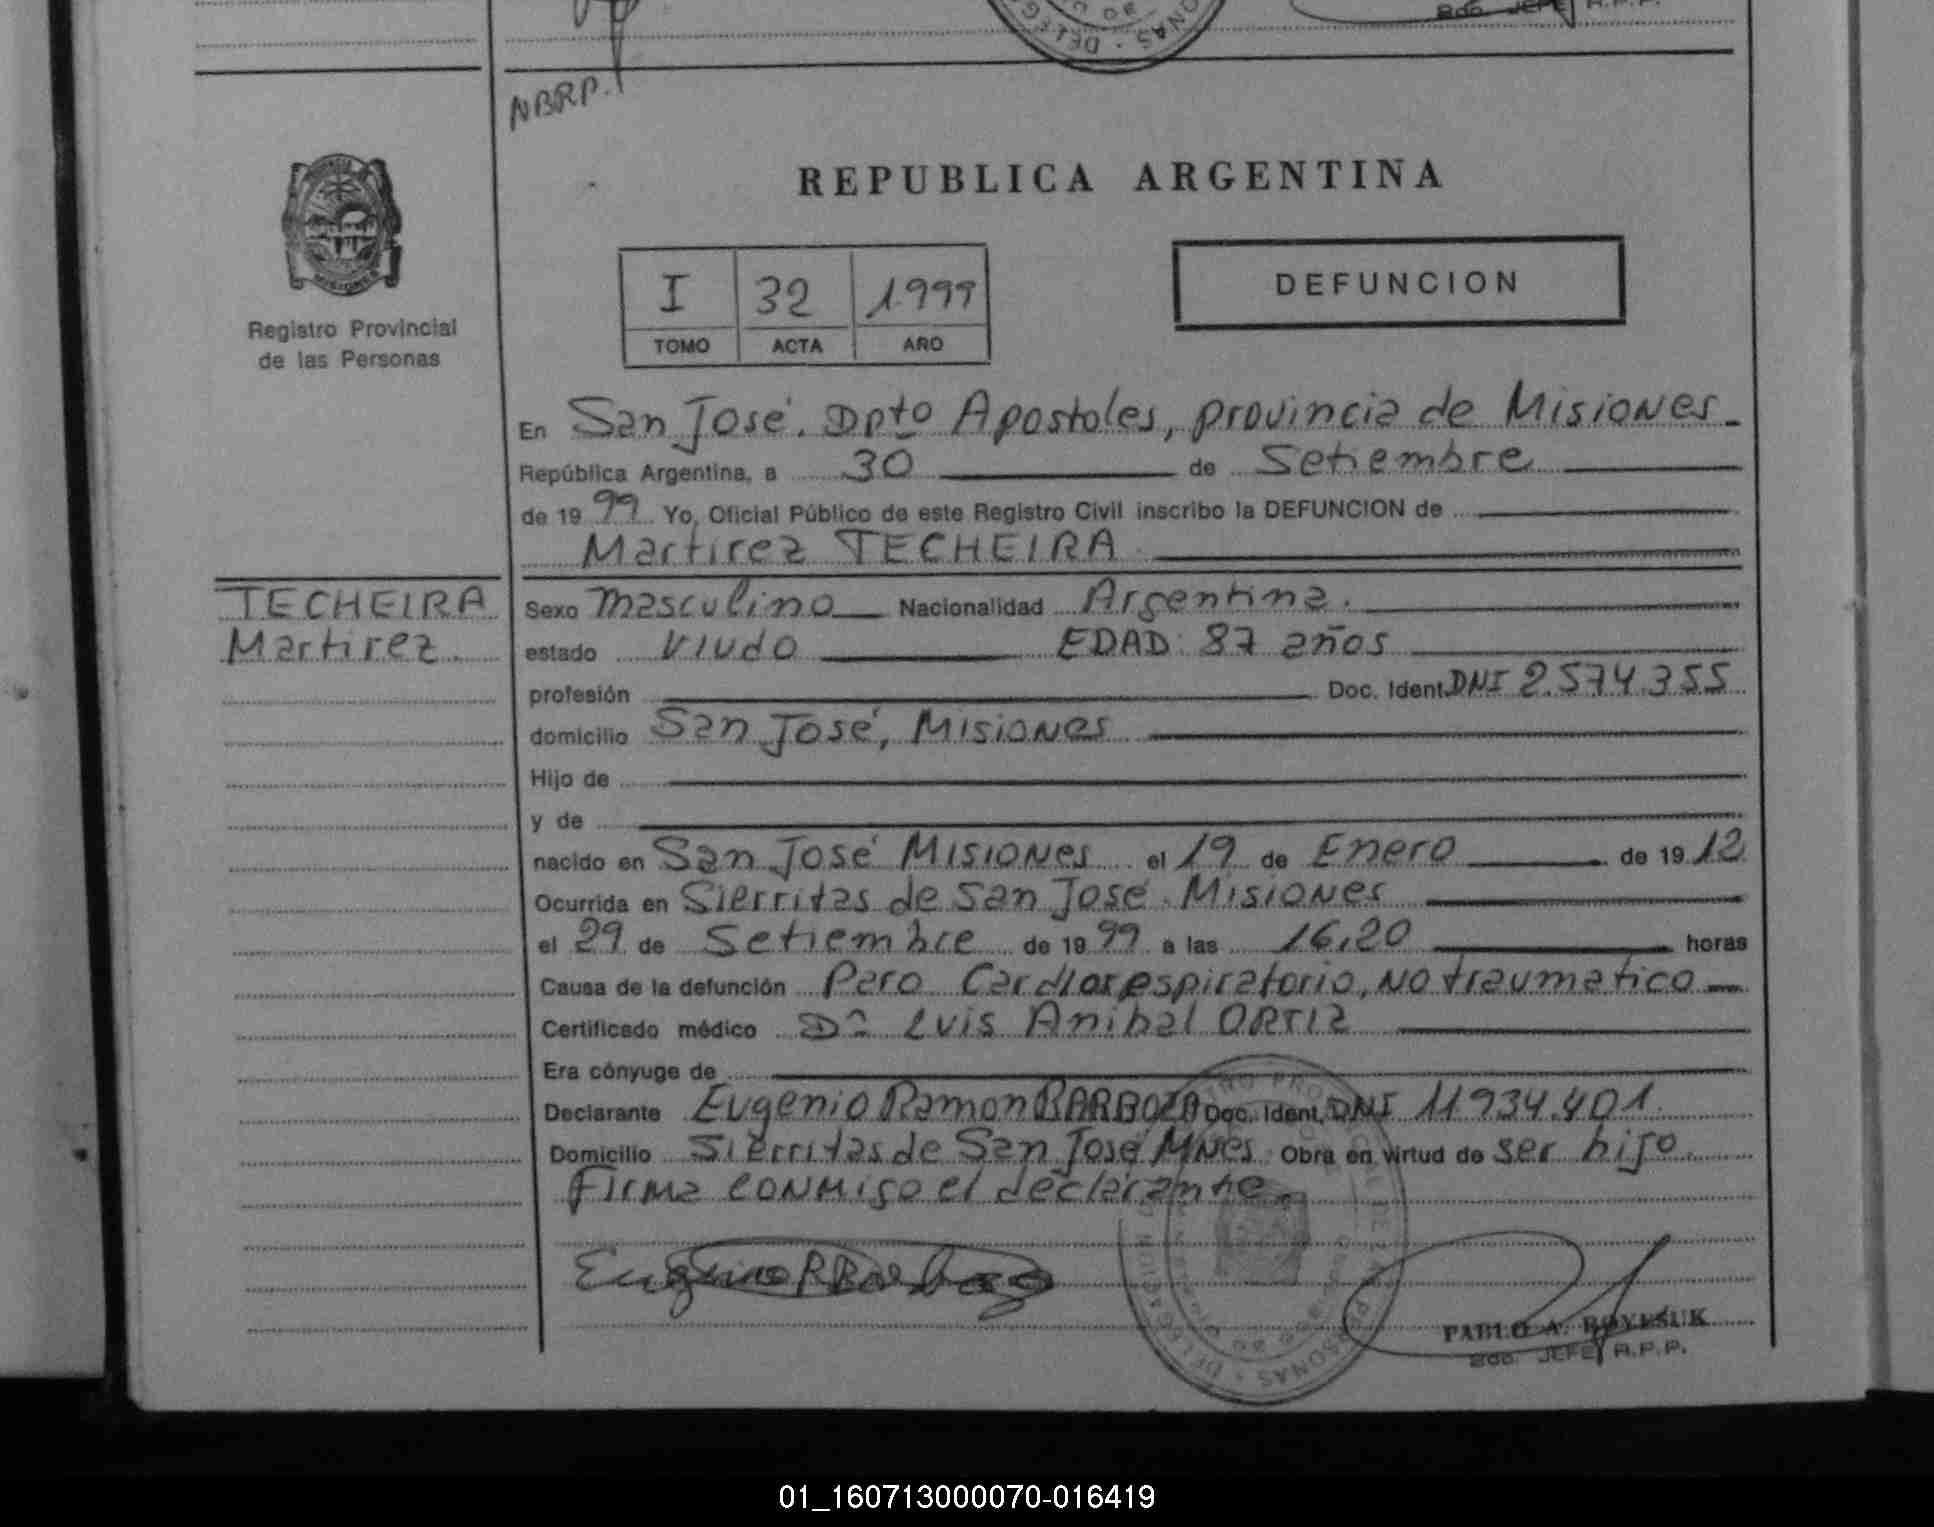 Bdo. JEFE R.P.P.
NBRP.
REPUBLICA ARGENTINA
I 32 1999
TOMO ACTA AÑO
DEFUNCION
Registro Provincial
de las Personas
En San José. Dpto Apostoles, provincia de Misiones
República Argentina, a 30 de Setiembre
de 1999 Yo, Oficial Público de este Registro Civil inscribo la DEFUNCION de
Martirez TECHEIRA
TECHEIRA
Martirez
Sexo Masculino Nacionalidad Argentina.
estado Viudo EDAD: 87 años
profesión Doc. Ident. DNI 2.574.355
domicilio San José, Misiones
Hijo de
y de
nacido en San José Misiones el 19 de Enero de 1912
Ocurrida en Sierritas de San José. Misiones
el 29 de Setiembre de 1999 a las 16,20 horas
Causa de la defunción Paro Cardiorespiratorio, no traumatico
Certificado médico Dr Luis Anibal ORTIZ
Era cónyuge de
Declarante Eugenio Ramon BARBOZA Doc. Ident. DNI 11.934.401
Domicilio Sierritas de San José Mnes. Obra en virtud de ser hijo.
Firma conmigo el declarante.
Eugenio R Barboza
PABLO A. BOYESUK
Bdo. JEFE R.P.P.
01_160713000070-016419